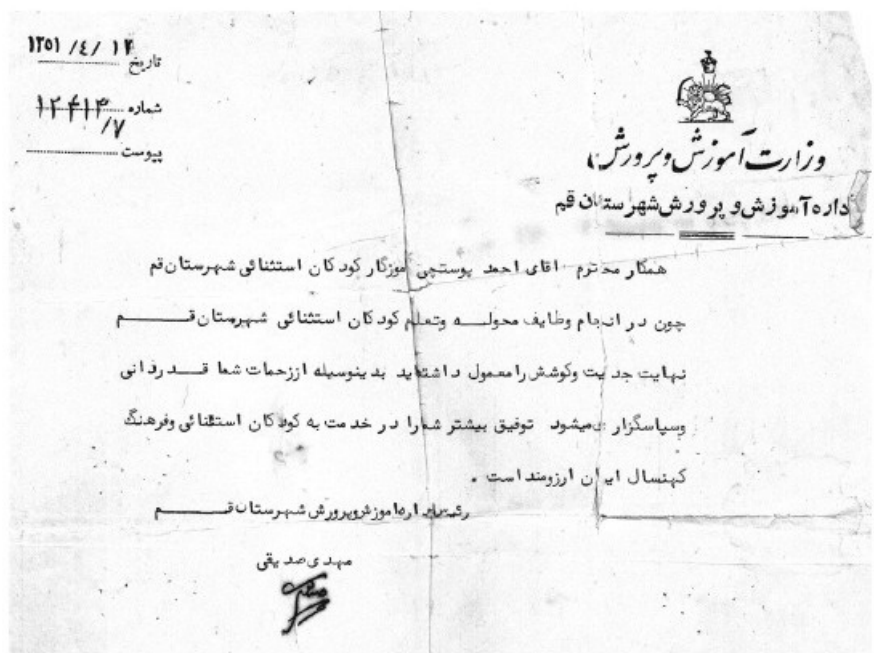 تاریخ ۱۳۵۱/۴/۱۴
شماره ۱۲۴۱۳/۷
پیوست
وزارت آموزش و پرورش
اداره آموزش و پرورش شهرستان قم
همکار محترم اقای احمد پوستچی آموزگار کودکان استثنائی شهرستان قم
چون در انجام وظایف محولـه وتعلم کودکان استثنائی شهرستان قـــم
نهایت جدیت وکوشش رامعمول داشتهاید بدینوسیله اززحمات شما قــدردانی
وسپاسگزاری میشود توفیق بیشتر شمارا در خدمت به کودکان استثنائی وفرهنگ
کهنسال ایران ارزومند است .
رئیس اداره اموزش وپرورش شهرستان قــــم
مهدی صدیقی